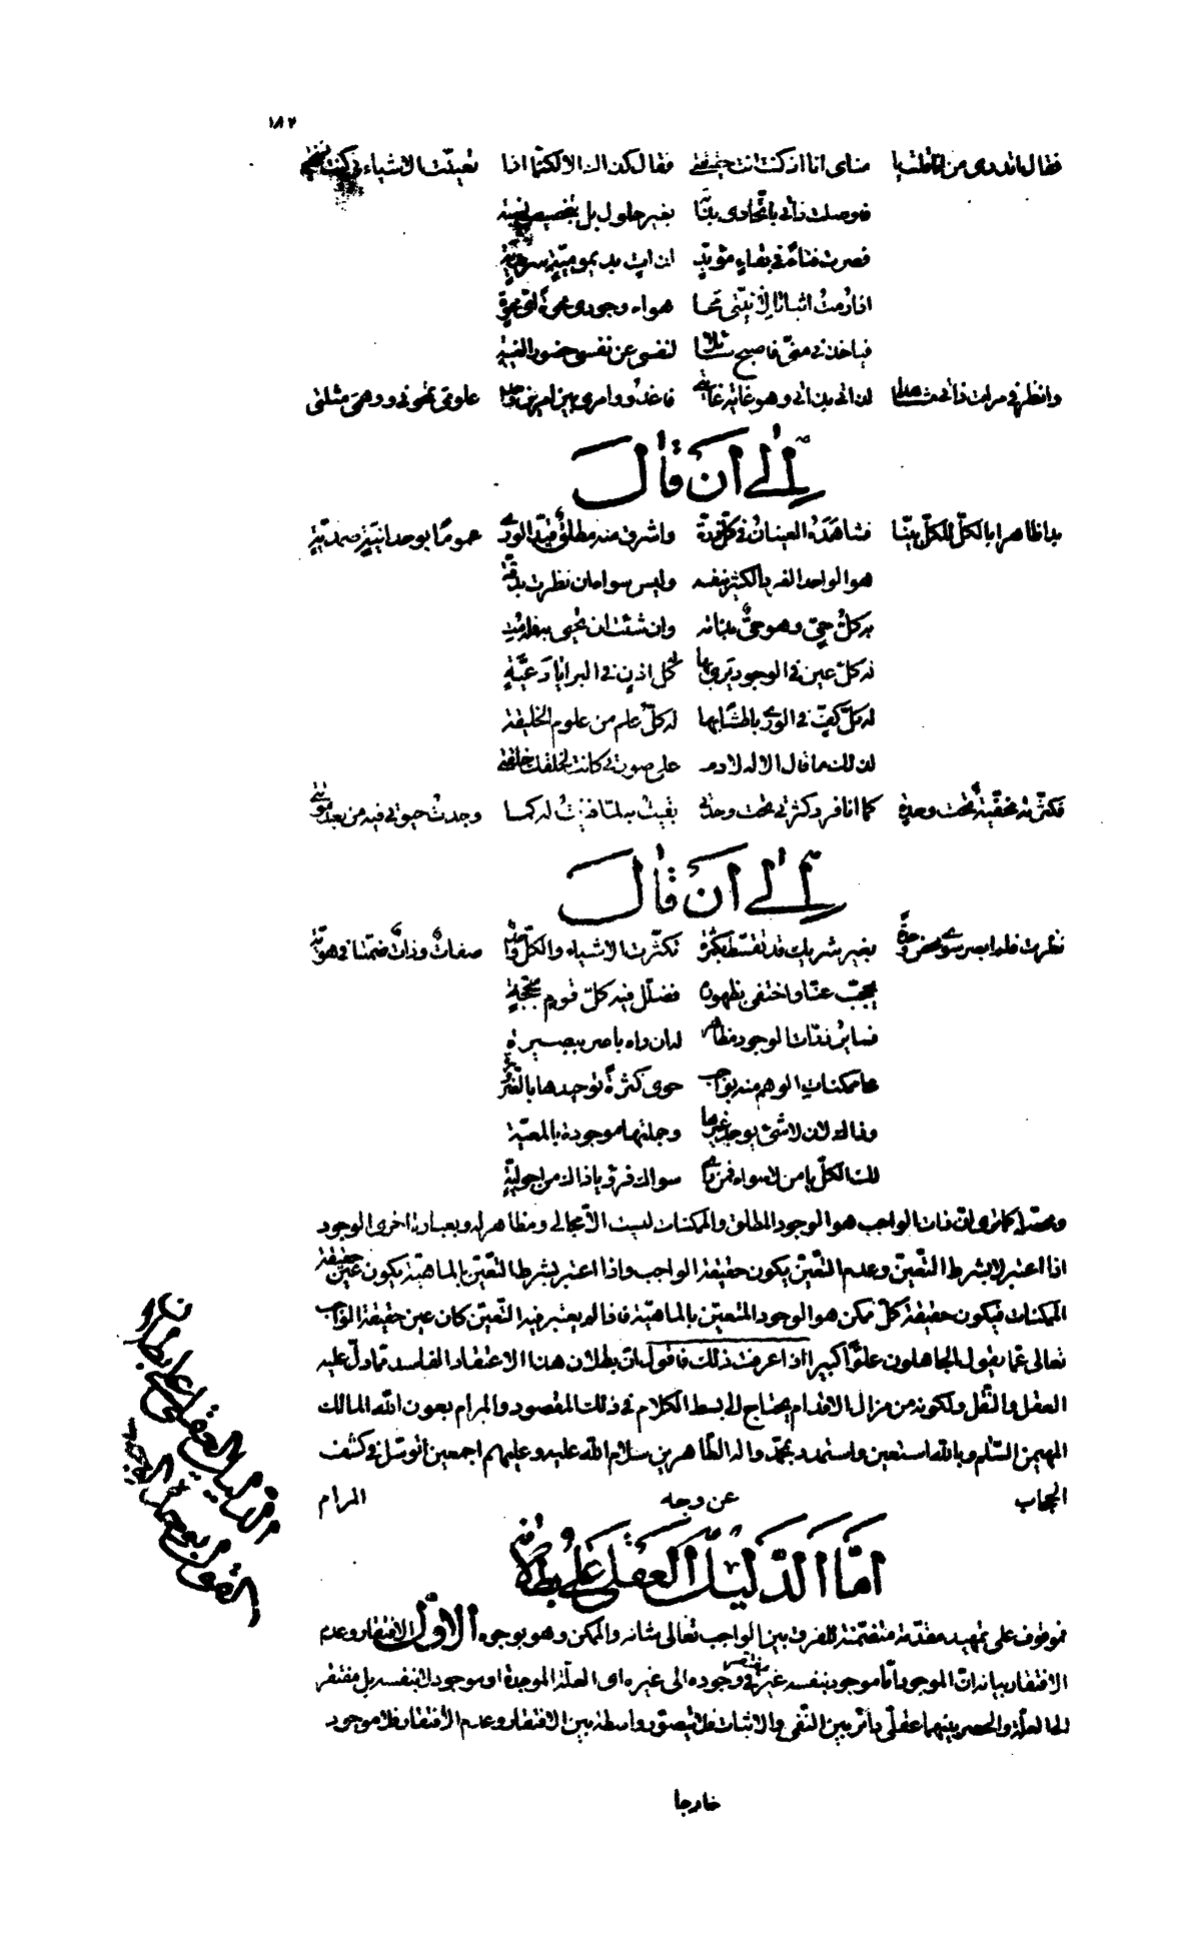 ١٨٧
فقال اتدري من انا قلت يا مناي انا اذ كنت انت حقيقتي فقال كذاك الامر لكنما اذا تعينت الاشياء بي كنت نسختي
فاوصلت ذاتي باتحادي بذاته بغير حلول بل بتحقيق نسبتي
فصرت فناءً في بقاءٍ مؤبدٍ لذاتٍ بديموميةٍ سرمديةٍ
هواء وجودي
فياخذني مني فاصبح سائلا لنفسي عن نفسي حضور الغيبة
وانظر في مرات ذاتي مشاهدا لذاتي بذاتي وهو غاية غايتي فاغدو وامري بين امرين واقف علومي تمحوني ووهمي مثبتي
إلى أن قال
بدا ظاهرا بالكلّ للكلّ بيّنا فشاهده العينان في كلّ ذرّة واشرق منه مطلق قيد الورى عموما بوحدانيّةٍ صمديّةٍ
هو الواحد الفرد الكثير بنفسه وليس سواه ان نظرت بدقّة
به كلّ حيّ وهو حيّ بذاته وان شئت ان تحيى به فله مت
له كلّ عين في الوجود يرى بها له كلّ اذن في البرايا وعيّة
له كلّ كفّ في الورى بالطشا بها له كلّ علم من علوم الخليقة
لذلك ما قال الاله لادم على صورتي كانت لخلقك خلقتي
فكثرته مخفيّة تحت وحدة كما انا فرد كثرتي تحت وحدتي بقيت به لمّا فنيت له كما وجدت حيوتي فيه من بعد موتتي
إلى أن قال
نظرت فلم ابصر سوى محض وحدة بغير شريك قد تغطت بكثرة تكثّرت الاشياء والكلّ واحد صفات وذات ضمّنا في هويّة
تحجّب عنّا واختفى بظهوره فضلّل فيه كلّ قوم بحجّة
فسائر ذرّات الوجود مظاهر لمن راه باصر ببصيرة
حوى كثرة توحيدها بالتفرّد
وذاك لان لا شيء يوجد غيرها وجملتها موجودة بالمعيّة
لك الكلّ يا من لا سواه فمن رأى سواك فرؤياه ذاك من احوليّة
ومحصّله كما ترى انّ ذات الواجب هو الوجود المطلق والممكنات ليست الاّ مجالي ومظاهر له وبعبارة اخرى الوجود
اذا اعتبر لا بشرط التّعيّن وعدم التّعيّن يكون حقيقة الواجب واذا اعتبر بشرط التّعيّن بالماهيّة يكون عين حقيقة
الممكنات فيكون حقيقة كلّ ممكن هو الوجود المتعيّن بالماهيّة فاذا لم يعتبر فيه التّعيّن كان عين حقيقة الواجب
تعالى عمّا يقول الجاهلون علوّا كبيرا اذا عرفت ذلك فاقول انّ بطلان هذا الاعتقاد الفاسد ممّا دلّ عليه
العقل والنّقل ولكونه من مزالّ الاقدام يحتاج الى بسط الكلام في ذلك المقصود والمرام بعون الله المالك
المهيمن السّلام وبالله استعين واستمد وبمحمّد واله الطّاهرين سلام الله عليه وعليهم اجمعين اتوسّل في كشف
الحجاب عن وجه المرام
امّا الدّليل العقلي على بطلانه
فموقوف على تمهيد مقدّمة متضمّنة للفرق بين الواجب تعالى شانه والممكن وهو بوجوه الاوّل الافتقار وعدم
الافتقار بيانه انّ الموجود امّا موجود بنفسه غير مفتقر في وجوده الى غيره اي العلّة الموجدة او موجود لا بنفسه بل مفتقر
الى العلّة والحصر بينهما عقليّ دائر بين النّفي والاثبات فلا يتصوّر واسطة بين الافتقار وعدم الافتقار فلا موجود
خارجا
الدليل العقلي على بطلان
القول بوحدة الوجود